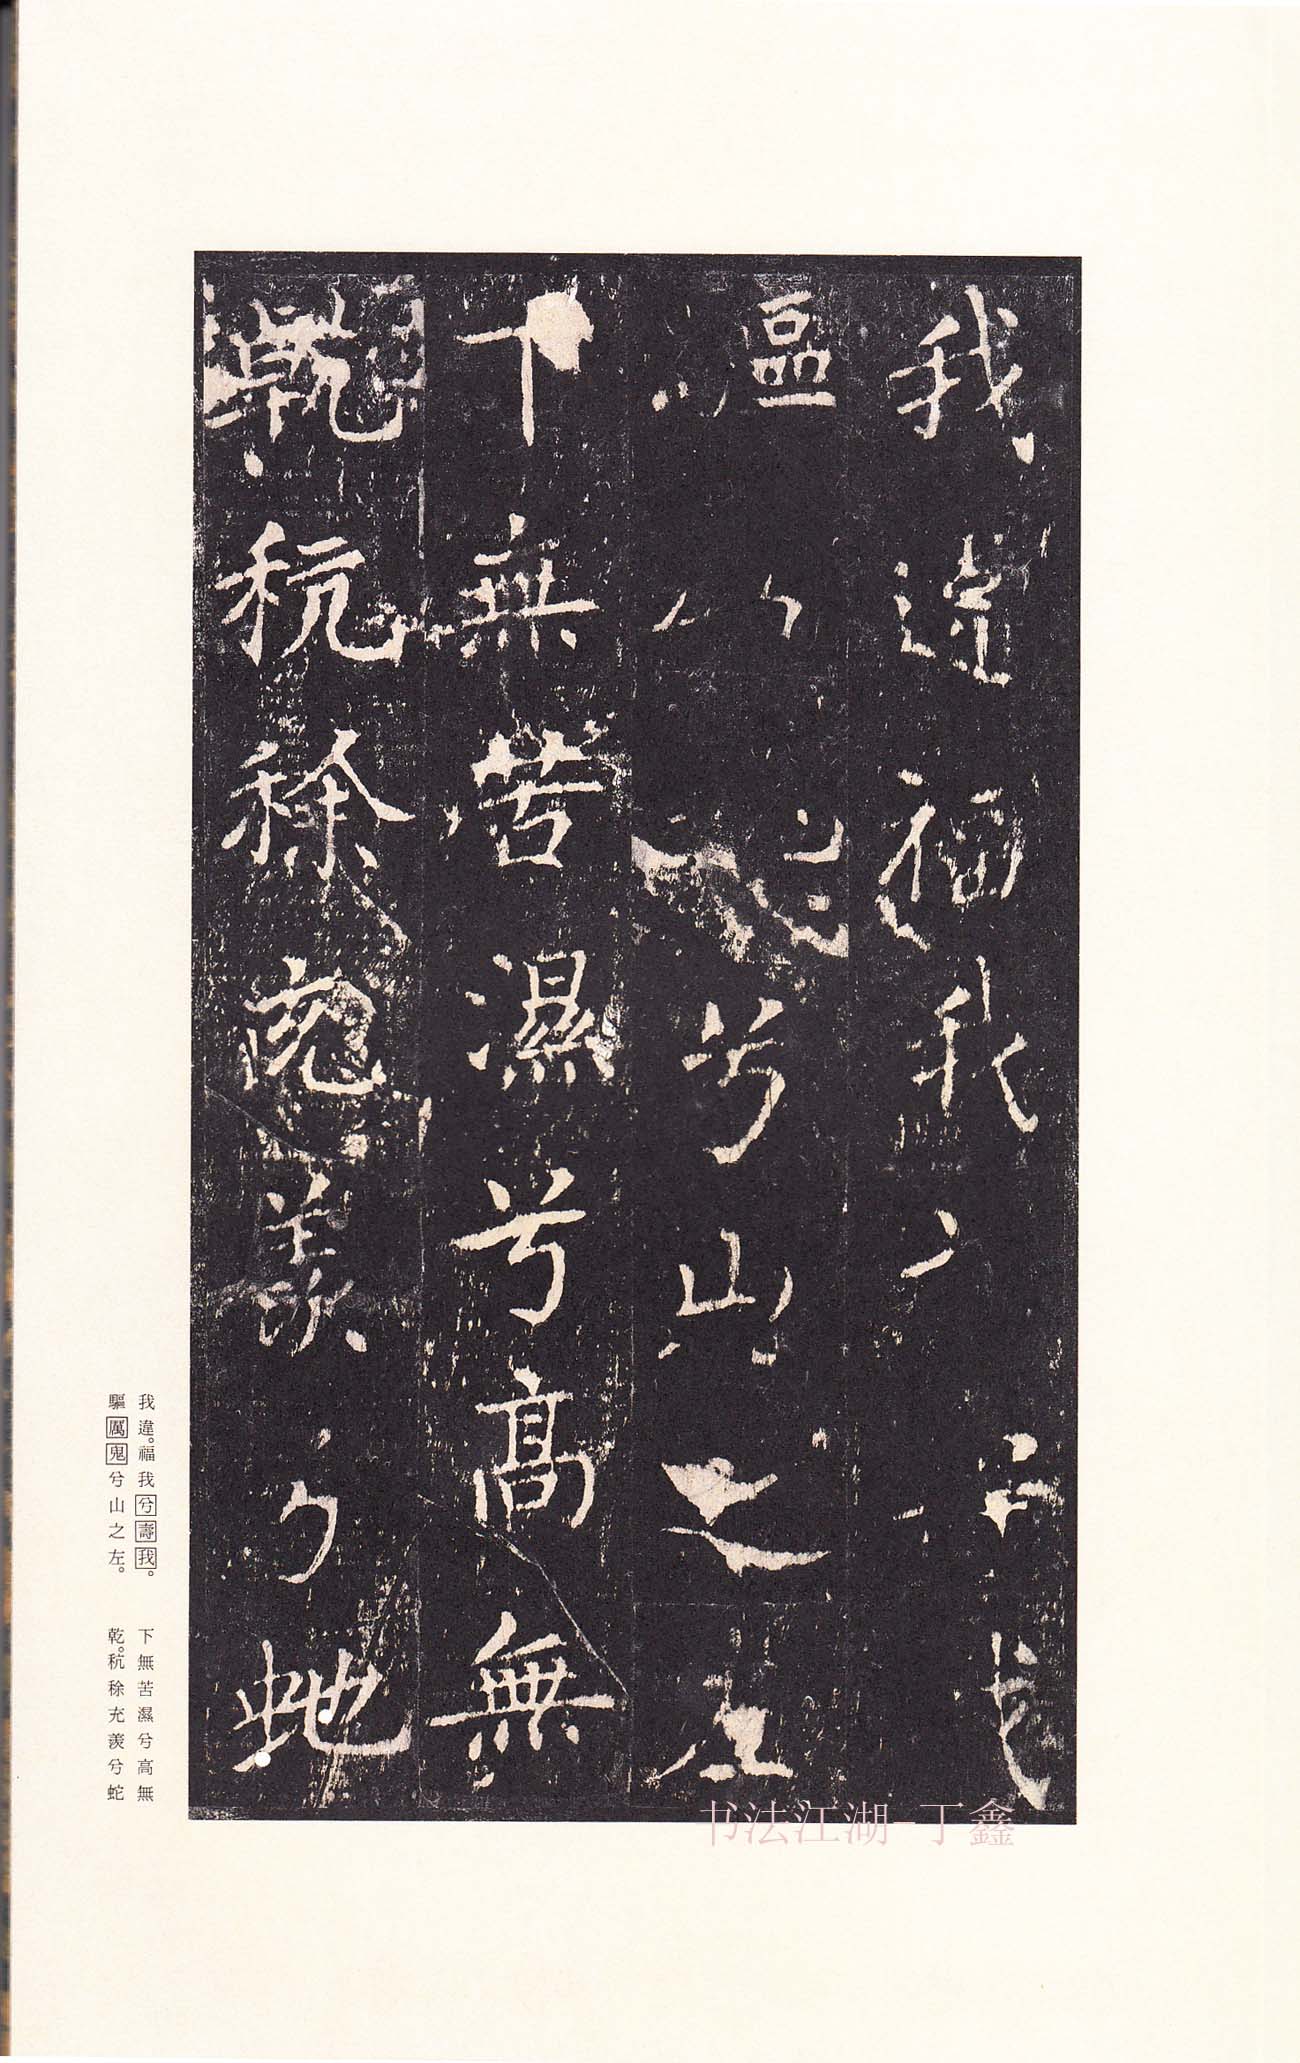 我違福我兮壽我
驅厲鬼兮山之左
下無苦濕兮高無
乾秔稌充羨兮虵
我違。福我兮壽我。
驅厲鬼兮山之左。
下無苦濕兮高無
乾。秔稌充羨兮蛇
书法江湖-丁鑫